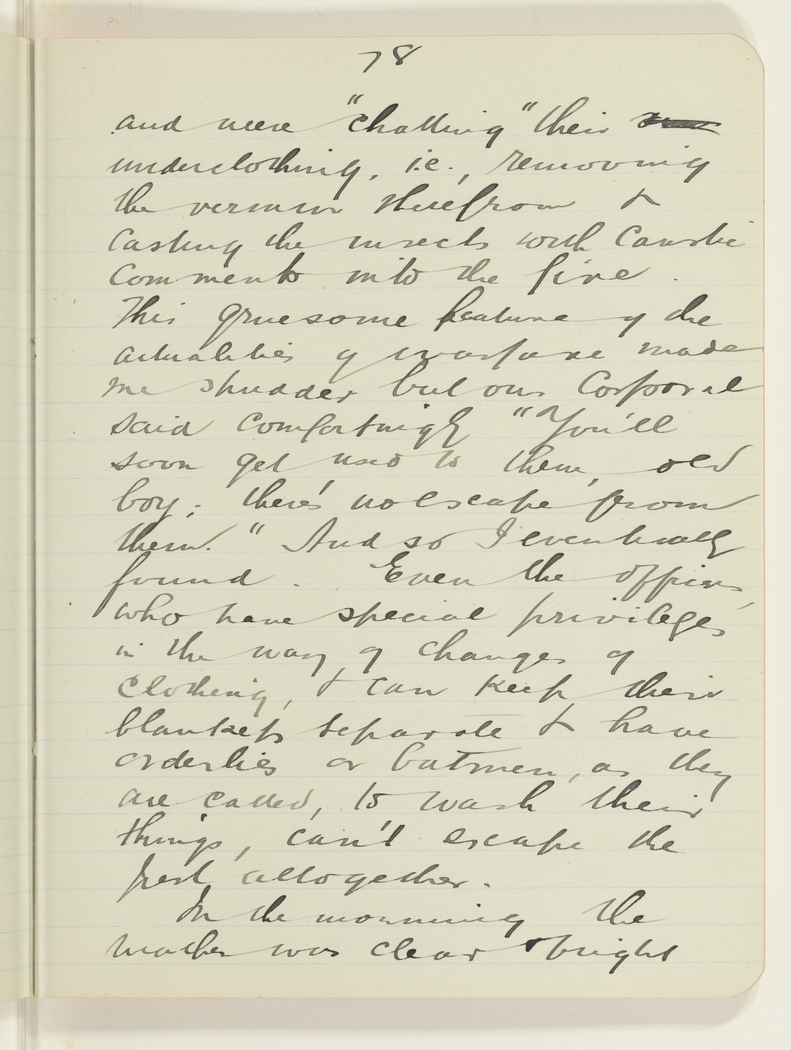 78
and were "chatting" their
underclothing, i.e., removing
the vermin therefrom &
casting the insects with caustic
comments into the fire.
This gruesome feature of the
actualities of warfare made
me shudder but our Corporal
said comfortingly "You'll
soon get used to them, old
boy; there's no escape from
them." And so I eventually
found. Even the officers,
who have special privileges
in the way of changes of
clothing, & can keep their
blankets separate & have
orderlies or batmen, as they
are called, to wash their
things, can't escape the
pest altogether.
In the morning the
weather was clear & bright